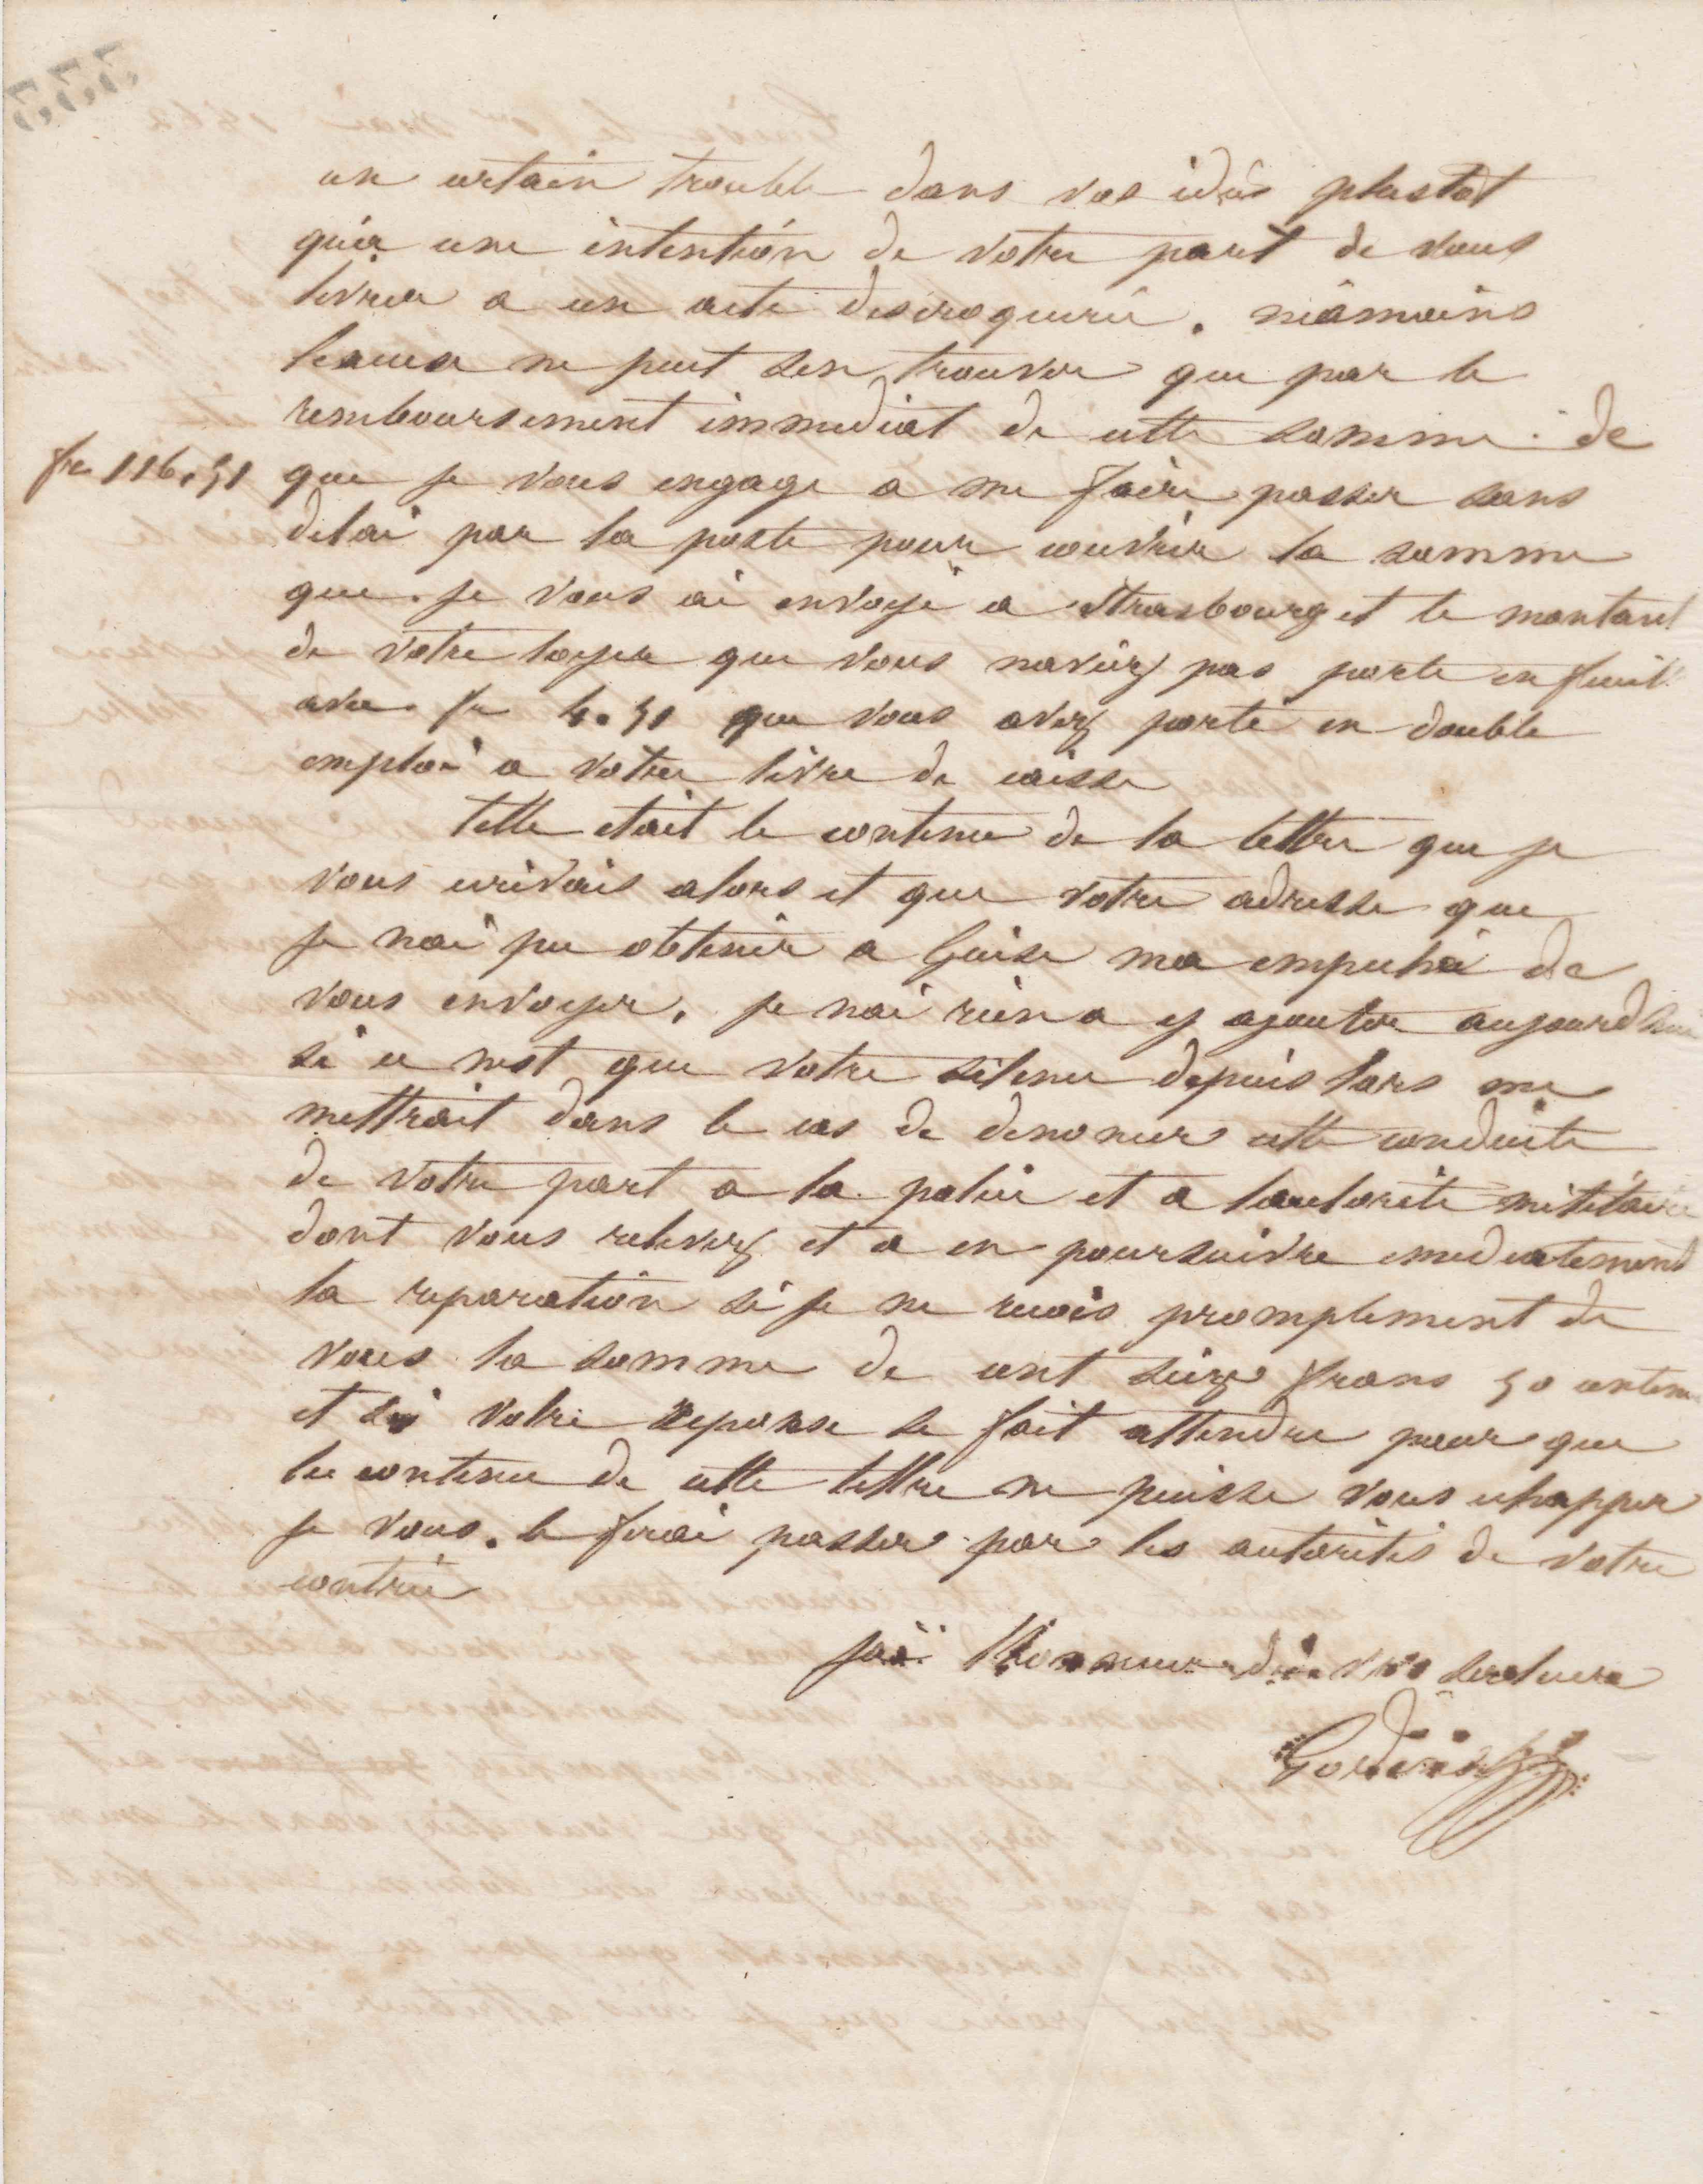 un certain trouble dans vos idées plustot
qu'a une intention de votre part de vous
livrer a un acte descroquerie. néamoins
ne peut sen trouver que par le
remboursement immediat de cette somme de
frs 116,51 que je vous engage a me faire passer sans
delai par la poste pour couvrir la somme
que je vous ai envoyé a Strasbourg et le montant
de votre loyer que vous naviez pas porté en
avec fr 4.51 que vous avez porté en double
emploi a votre livre de caisse
telle etait le contenu de la lettre que je
vous ecrivais alors et que votre adresse que
je nai pu obtenir a Guise ma empeché de
vous envoyer. je nai rien a y ajouter aujourdhui
si ce nest que votre silence depuis lors me
mettrait dans le cas de denoncer cette conduite
de votre part a la police et a lautorité militaire
dont vous relevez et a en poursuivre imediatement
la reparation si je ne recois promptement de
vous la somme de cent seize francs 50 centimes
et si votre reponse se fait attendre pour que
le contenu de cette lettre ne puisse vous echapper
je vous le ferai passer par les autorités de votre
contrée
jai lhonneur de vous saluer
Godin